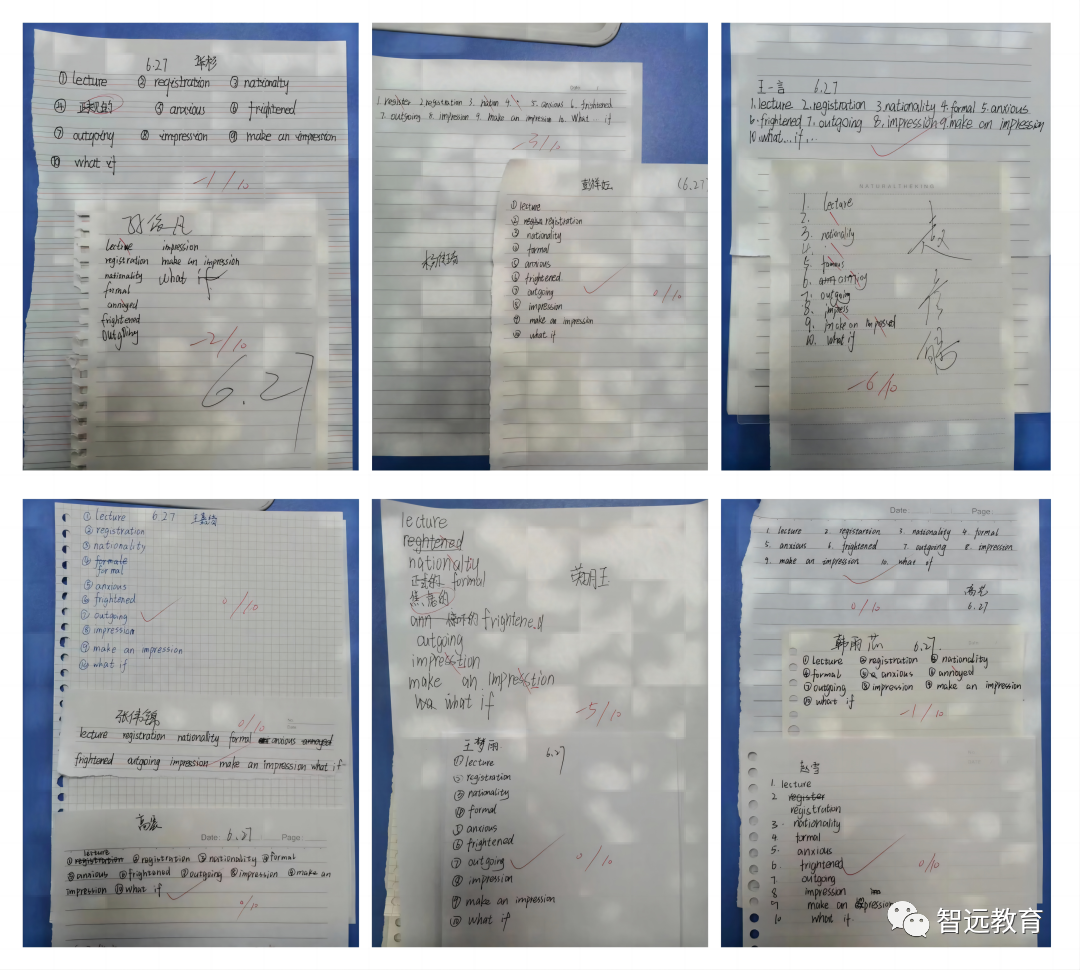 6.27 张杉
① lecture ② registration ③ nationalty
④ 正规的 ⑤ anxious ⑥ frightened
⑦ outgoing ⑧ impression ⑨ make an impression
⑩ what if
-1/10
lective impression
registration make an impression
nationality what if
formal
annoyed
frightened
outgoing
-2/10
6.27
1. register 2 registration 3. nation 4. 5. anxious 6. frightened
7. outgoing 8. impression 9. make an impression 10. What... if
-3/10
(6.27
① lecture
② registration
③ nationality
④ formal
⑤ anxious
⑥ frightened
⑦ outgoing
⑧ impression
⑨ make an impression
⑩ what if
0/10
王一言 6.27
1. lecture 2. registration 3. nationality 4. formal 5. anxious
6. frightened 7. outgoing 8. impression 9. make an impression
10. what... if...
NATURALTHEKING
1. lecture
2.
3. nationality
4.
5. famous
6. annoying
7. outgoing
8. impress
9. make an impressed
10. what if
-6/10
① lecture 6.27 王嘉琦
② registration
③ nationality
④ formale
formal
⑤ anxious
⑥ frightened
⑦ outgoing
⑧ impression
⑨ make an impression
⑩ what if
0/10
张伟锦 0/10
lecture registration nationality formal anxious annoyed
frightened outgoing impression make an impression what if
Date: 6.27 Page:
lecture
① registration ② registration ③ nationality ④ formal
⑤ anxious ⑥ frightened ⑦ outgoing ⑧ impression ⑨ make an
impression ⑩ what if
0/10
lecture
reghtened
nationality
正式的 formal
焦虑的
ann 惊吓的 frightened
outgoing
impresstion
make an impresstion
wa what if
荣玥王
-5/10
王梦雨 6.27
① lecture
② registration
③ nationality
④ formal
⑤ anxious
⑥ frightened
⑦ outgoing
⑧ impression
⑨ make an impression
⑩ what if
0/10
Date: Page:
1. lecture 2. registartion 3. nationality 4. formal
5. anxious 6. frightened 7. outgoing 8. impression
9. make an impression 10. what if
0/10 6.27
韩雨芯 6.27.
① lecture ② registration ③ nationality
④ formal ⑤ a anxious ⑥ annoyed
⑦ outgoing ⑧ impression ⑨ make an impression
⑩ what if
-1/10
赵雪
1. lecture
2 register
registration
3. nationality
4 formal
5. anxious
6. frightened
7. outgoing
8 impression im
9 make an impression
10 what if.
0/10
智远教育